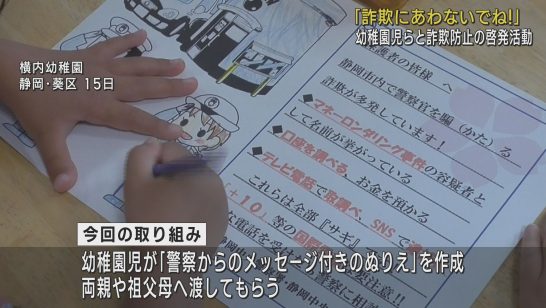 「詐欺にあわないでね!」
幼稚園児らと詐欺防止の啓発活動
横内幼稚園
静岡・葵区 15日
護者の皆様 へ
静岡市内で警察官を騙(かた)る
詐欺が多発しています!
マネーロンダリング事件の容疑者と
して名前が挙がっている
口座を調べる、お金を預かる
テレビ電話で取調べ、SNSで
これらは全部『サギ』
今回の取り組み
幼稚園児が「警察からのメッセージ付きのぬりえ」を作成
両親や祖父母へ渡してもらう